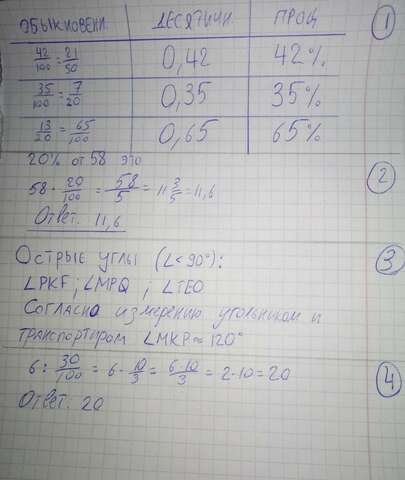 ОБЫКНОВЕНН. ДЕСЯТИЧН. ПРОЦ. ①
42/100 = 21/50 0,42 42%
35/100 = 7/20 0,35 35%
13/20 = 65/100 0,65 65%
20% от 58 это ②
58 · 20/100 = 58/5 = 11 3/5 = 11,6
Ответ. 11,6
Острые углы (∠<90°): ③
∠PKF; ∠MPQ; ∠TEO
Согласно измерению угольником и
транспортиром ∠MKP≈120°
6 : 30/100 = 6 · 10/3 = 6·10/3 = 2·10 = 20 ④
Ответ. 20